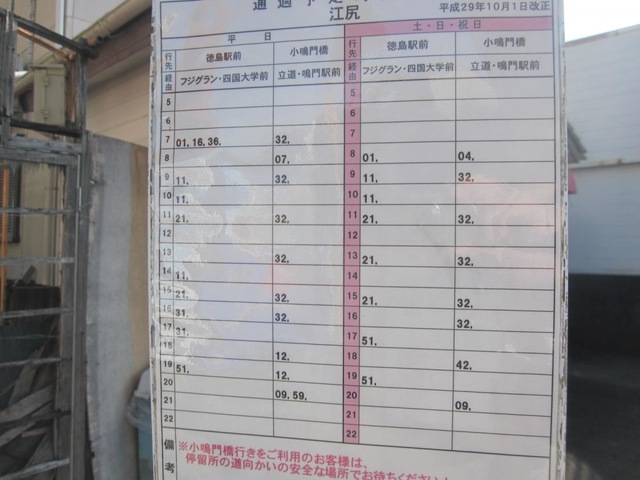 江尻
平成29年10月1日改正
平日 土・日・祝日
行先 徳島駅前 小鳴門橋 行先 徳島駅前 小鳴門橋
経由 フジグラン・四国大学前 立道・鳴門駅前 経由 フジグラン・四国大学前 立道・鳴門駅前
5 5
6 6
7 01, 16, 36, 32, 7
8 07, 8 01, 04,
9 11, 32, 9 11, 32,
10 11, 10 11,
11 21, 32, 11 21, 32,
12 12
13 32, 13 21, 32,
14 11, 14
15 21, 32, 15 21, 32,
16 31, 32, 16 32,
17 31, 17 51,
18 12, 18 42,
19 51, 12, 19 51,
20 09, 59, 20 09,
21 21
22 22
備考 ※小鳴門橋行きをご利用のお客様は、
停留所の道向かいの安全な場所でお待ちください